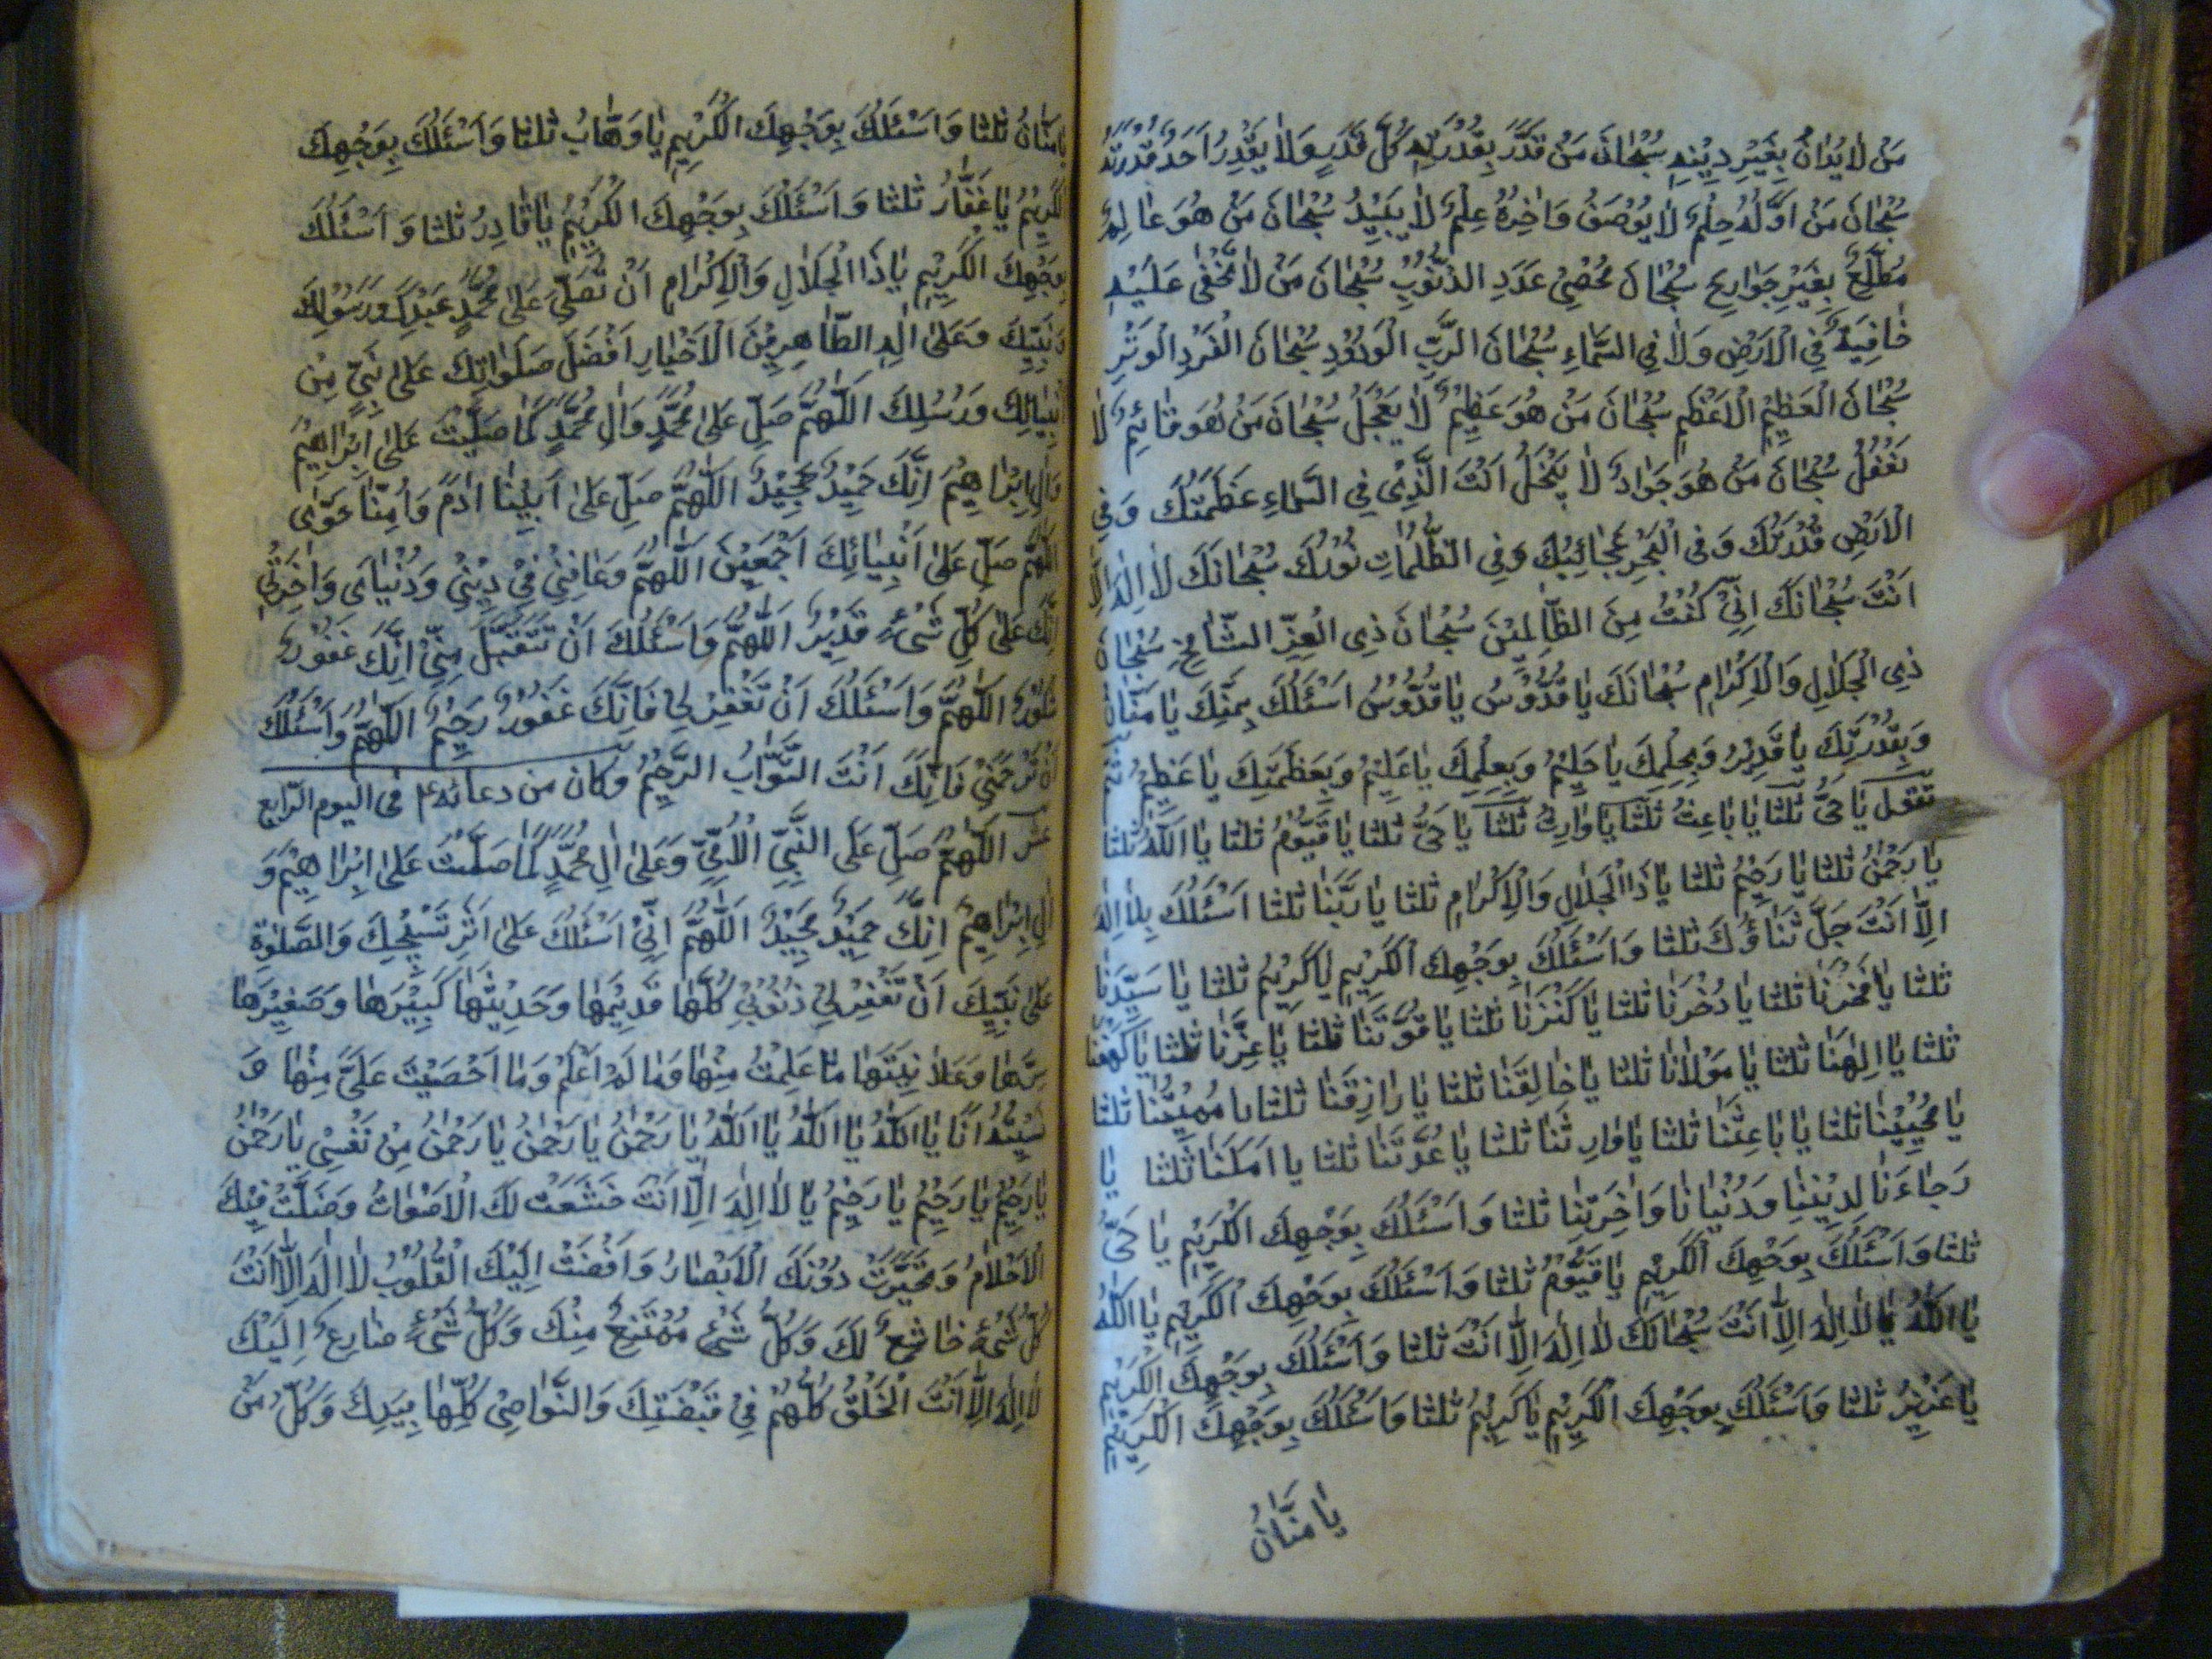 مَنْ لَا يُدَانُ بِغَيْرِ دِيْنِهِ سُبْحَانَ مَنْ قَدَّرَ بِقُدْرَتِهِ كُلَّ قَدَرٍ وَلَا يَقْدِرُ اَحَدٌ قُدْرَتَهُ
سُبْحَانَ مَنْ اَوَّلُهُ حِلْمٌ لَا يُوْصَفُ وَاٰخِرُهُ عِلْمٌ لَا يَبِيْدُ سُبْحَانَ مَنْ هُوَ عَالِمٌ
مُطَّلِعٌ بِغَيْرِ جَوَارِحٍ سُبْحَانَ مُحْصِىْ عَدَدِ الذُّنُوْبِ سُبْحَانَ مَنْ لَا تَخْفٰى عَلَيْهِ
خَافِيَةٌ فِى الْاَرْضِ وَلَا فِى السَّمَاءِ سُبْحَانَ الرَّبِّ الْوَدُوْدِ سُبْحَانَ الْفَرْدِ الْوِتْرِ
سُبْحَانَ الْعَظِيْمِ الْاَعْظَمِ سُبْحَانَ مَنْ هُوَ عَظِيْمٌ لَا يَعْجَلُ سُبْحَانَ مَنْ هُوَ قَائِمٌ لَا
يَغْفُلُ سُبْحَانَ مَنْ هُوَ جَوَادٌ لَا يَبْخَلُ اَنْتَ الَّذِىْ فِى السَّمَاءِ عَظَمَتُكَ وَفِى
الْاَرْضِ قُدْرَتُكَ وَفِى الْبَحْرِ عَجَائِبُكَ وَفِى الظُّلُمَاتِ نُوْرُكَ سُبْحَانَكَ لَا اِلٰهَ اِلَّا
اَنْتَ سُبْحَانَكَ اِنِّىْ كُنْتُ مِنَ الظَّالِمِيْنَ سُبْحَانَ ذِى الْعِزِّ الشَّامِخِ سُبْحَانَ
ذِى الْجَلَالِ وَالْاِكْرَامِ سُبْحَانَكَ يَا قُدُّوْسُ يَا قُدُّوْسُ اَسْئَلُكَ بِمَنِّكَ يَا مَنَّانُ
وَبِقُدْرَتِكَ يَا قَدِيْرُ وَبِحِلْمِكَ يَا حَلِيْمُ وَبِعِلْمِكَ يَا عَلِيْمُ وَبِعَظَمَتِكَ يَا عَظِيْمُ ثُمَّ
تَقُوْلُ يَا حَىُّ ثلثا يَا بَاعِثُ ثلثا يَا وَارِثُ ثلثا يَا حَىُّ ثلثا يَا قَيُّوْمُ ثلثا يَا اَللّٰهُ ثلثا
يَا رَحْمٰنُ ثلثا يَا رَحِيْمُ ثلثا يَا ذَا الْجَلَالِ وَالْاِكْرَامِ ثلثا يَا رَبَّنَا ثلثا اَسْئَلُكَ بِلَا اِلٰهَ
اِلَّا اَنْتَ جَلَّ ثَنَاؤُكَ ثلثا وَاَسْئَلُكَ بِوَجْهِكَ الْكَرِيْمِ يَا كَرِيْمُ ثلثا يَا سَيِّدَنَا
ثلثا يَا فَخْرَنَا ثلثا يَا ذُخْرَنَا ثلثا يَا كَنْزَنَا ثلثا يَا قُوَّتَنَا ثلثا يَا عِزَّنَا ثلثا يَا كَهْفَنَا
ثلثا يَا اِلٰهَنَا ثلثا يَا مَوْلَانَا ثلثا يَا خَالِقَنَا ثلثا يَا رَازِقَنَا ثلثا يَا مُمِيْتَنَا ثلثا
يَا مُحْيِيْنَا ثلثا يَا بَاعِثَنَا ثلثا يَا وَارِثَنَا ثلثا يَا عُدَّتَنَا ثلثا يَا اَمَلَنَا ثلثا يَا
رَجَاءَنَا لِدِيْنِنَا وَدُنْيَانَا وَاٰخِرَتِنَا ثلثا وَاَسْئَلُكَ بِوَجْهِكَ الْكَرِيْمِ يَا حَىُّ
ثلثا وَاَسْئَلُكَ بِوَجْهِكَ الْكَرِيْمِ يَا قَيُّوْمُ ثلثا وَاَسْئَلُكَ بِوَجْهِكَ الْكَرِيْمِ يَا اَللّٰهُ
يَا اَللّٰهُ يَا لَا اِلٰهَ اِلَّا اَنْتَ سُبْحَانَكَ لَا اِلٰهَ اِلَّا اَنْتَ ثلثا وَاَسْئَلُكَ بِوَجْهِكَ الْكَرِيْمِ
يَا عَزِيْزُ ثلثا وَاَسْئَلُكَ بِوَجْهِكَ الْكَرِيْمِ يَا كَرِيْمُ ثلثا وَاَسْئَلُكَ بِوَجْهِكَ الْكَرِيْمِ
يَا مَنَّانُ
يَا مَنَّانُ ثلثا وَاَسْئَلُكَ بِوَجْهِكَ الْكَرِيْمِ يَا وَهَّابُ ثلثا وَاَسْئَلُكَ بِوَجْهِكَ
الْكَرِيْمِ يَا غَفَّارُ ثلثا وَاَسْئَلُكَ بِوَجْهِكَ الْكَرِيْمِ يَا قَادِرُ ثلثا وَاَسْئَلُكَ
بِوَجْهِكَ الْكَرِيْمِ يَا ذَا الْجَلَالِ وَالْاِكْرَامِ اَنْ تُصَلِّىَ عَلٰى مُحَمَّدٍ عَبْدِكَ وَرَسُوْلِكَ
وَنَبِيِّكَ وَعَلٰى اٰلِهِ الطَّاهِرِيْنَ الْاَخْيَارِ اَفْضَلَ صَلَوَاتِكَ عَلٰى نَبِىٍّ مِنْ
اَنْبِيَائِكَ وَرُسُلِكَ اَللّٰهُمَّ صَلِّ عَلٰى مُحَمَّدٍ وَاٰلِ مُحَمَّدٍ كَمَا صَلَّيْتَ عَلٰى اِبْرَاهِيْمَ
وَاٰلِ اِبْرَاهِيْمَ اِنَّكَ حَمِيْدٌ مَجِيْدٌ اَللّٰهُمَّ صَلِّ عَلٰى اَبِيْنَا اٰدَمَ وَاُمِّنَا حَوّٰى
اَللّٰهُمَّ صَلِّ عَلٰى اَنْبِيَائِكَ اَجْمَعِيْنَ اَللّٰهُمَّ وَعَافِنِىْ فِىْ دِيْنِىْ وَدُنْيَاىَ وَاٰخِرَتِىْ
اِنَّكَ عَلٰى كُلِّ شَىْءٍ قَدِيْرٌ اَللّٰهُمَّ وَاَسْئَلُكَ اَنْ تَتَقَبَّلَ مِنِّىْ اِنَّكَ غَفُوْرٌ
شَكُوْرٌ اَللّٰهُمَّ وَاَسْئَلُكَ اَنْ تَغْفِرَ لِىْ فَاِنَّكَ غَفُوْرٌ رَحِيْمٌ اَللّٰهُمَّ وَاَسْئَلُكَ
اَنْ تَرْحَمَنِىْ فَاِنَّكَ اَنْتَ التَّوَّابُ الرَّحِيْمُ وكان من دعائه ؑ فى اليوم الرابع
عشر اَللّٰهُمَّ صَلِّ عَلَى النَّبِىِّ الْاُمِّىِّ وَعَلٰى اٰلِ مُحَمَّدٍ كَمَا صَلَّيْتَ عَلٰى اِبْرَاهِيْمَ وَ
اٰلِ اِبْرَاهِيْمَ اِنَّكَ حَمِيْدٌ مَجِيْدٌ اَللّٰهُمَّ اِنِّىْ اَسْئَلُكَ عَلٰى اَثَرِ تَسْبِيْحِكَ وَالصَّلٰوةِ
عَلٰى نَبِيِّكَ اَنْ تَغْفِرَ لِىْ ذُنُوْبِىْ كُلَّهَا قَدِيْمَهَا وَحَدِيْثَهَا كَبِيْرَهَا وَصَغِيْرَهَا
سِرَّهَا وَعَلَانِيَتَهَا مَا عَلِمْتُ مِنْهَا وَمَا لَمْ اَعْلَمْ وَمَا اَحْصَيْتَ عَلَىَّ مِنْهَا وَ
نَسِيْتُهُ اَنَا يَا اَللّٰهُ يَا اَللّٰهُ يَا اَللّٰهُ يَا رَحْمٰنُ يَا رَحْمٰنُ يَا رَحْمٰنُ مِنْ نَفْسِىْ يَا رَحْمٰنُ
يَا رَحِيْمُ يَا رَحِيْمُ يَا رَحِيْمُ يَا لَا اِلٰهَ اِلَّا اَنْتَ خَشَعَتْ لَكَ الْاَصْوَاتُ وَضَلَّتْ فِيْكَ
الْاَحْلَامُ وَتَحَيَّرَتْ دُوْنَكَ الْاَبْصَارُ وَاَفْضَتْ اِلَيْكَ الْقُلُوْبُ لَا اِلٰهَ اِلَّا اَنْتَ
كُلُّ شَىْءٍ خَاشِعٌ لَكَ وَكُلُّ شَىْءٍ مُمْتَنِعٌ مِنْكَ وَكُلُّ شَىْءٍ ضَارِعٌ اِلَيْكَ
لَا اِلٰهَ اِلَّا اَنْتَ الْخَلْقُ كُلُّهُمْ فِىْ قَبْضَتِكَ وَالنَّوَاصِىْ كُلُّهَا بِيَدِكَ وَكُلُّ مَنْ